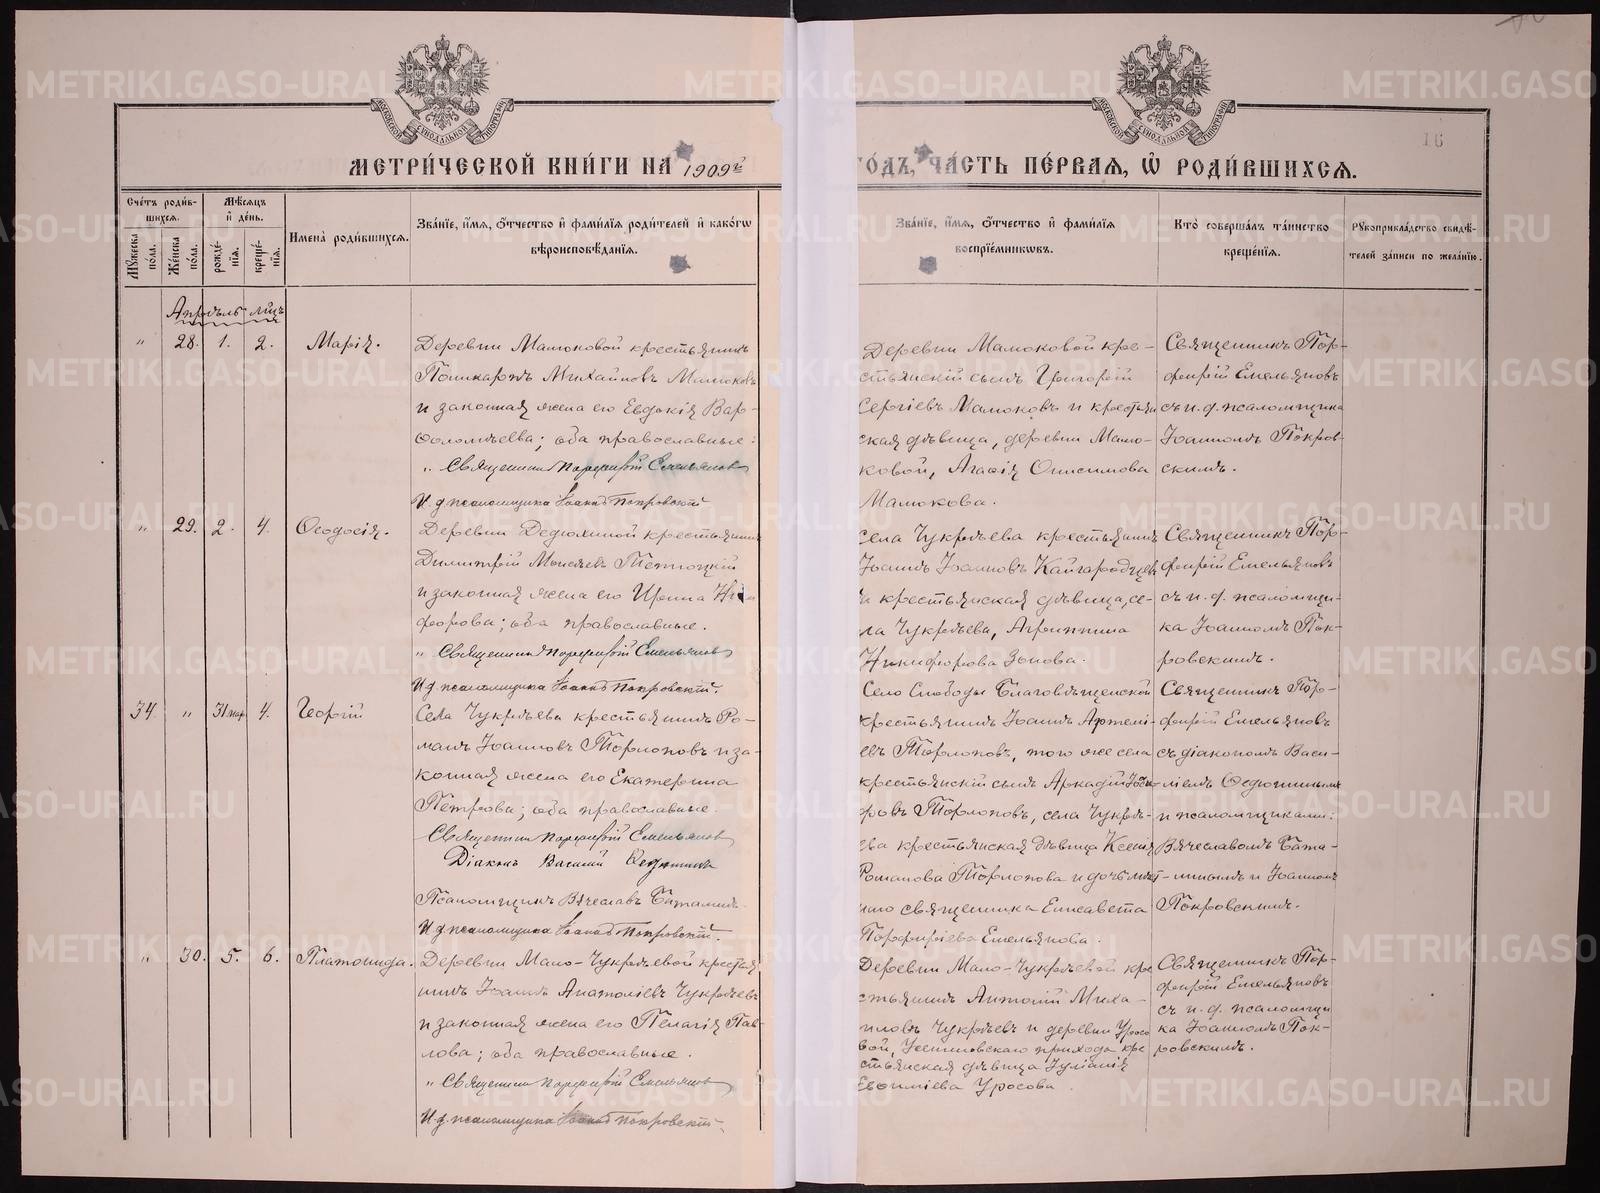 МЕТРИ́ЧЕСКОЙ КНИ́ГИ НА 1909й
ГО́ДЪ, ЧА́СТЬ ПЕ́РВАЯ, Ѡ҆ РОДИ́ВШИХСЯ.
16
Сче́тъ роди́в-
шихся.
Мѣ́сяцъ
и҆ де́нь.
Мꙋ́жеска по́ла.
Же́нска по́ла.
рожде́-
нїя.
креще́-
нїя.
И҆мена̀ роди́вшихся.
Зва́нїе, и҆́мя, ѻ҆́тчество и҆ фами́лїя роди́телей и҆ како́гѡ
вѣроисповѣ́данїя.
Зва́нїе, и҆́мя, ѻ҆́тчество и҆ фами́лїя
воспрїе́мникѡвъ.
Кто̀ соверша́лъ та́инство
креще́нїя.
Рꙋкоприкла́дство свидѣ́-
телей за́писи по жела́нїю.
Апрѣль мцъ
" 28. 1. 2. Марія.
Деревни Мамоковой крестьянинъ
Михайловъ Мамоковъ
и законная жена его Евдокія Вар-
ѳоломѣева; оба православные.
" Священникъ Порфирій Емельяновъ
И. д. псаломщика Іоаннъ Покровскій
Деревни Мамоковой кре-
стьянскій сынъ Григорій
Сергіевъ Мамоковъ и крестьян
ская дѣвица, деревни Мамо-
ковой, Агаѳія Онисимова
Мамокова.
Священникъ Пор-
фирій Емельяновъ
съ и. д. псаломщика
Іоанномъ Покров-
скимъ.
" 29. 2. 4. Ѳеодосія.
Деревни Дедюхиной крестьянинъ
Димитрій Моисеевъ
и законная жена его Ирина Ники
форова; оба православные.
" Священникъ Порфирій Емельяновъ
И. д. псаломщика Іоаннъ Покровскій.
села Чукрѣева крестьянинъ
Іоаннъ Іоанновъ Кайгородцевъ
и крестьянская дѣвица, се-
ла Чукрѣева, Агриппина
Никифорова Зонова.
Священникъ Пор-
фирій Емельяновъ
съ и. д. псаломщи-
ка Іоанномъ Пок-
ровскимъ.
34 " 31 мар. 4. Георгій
Села Чукрѣева крестьянинъ Ро-
манъ Іоанновъ Торлоповъ и за-
конная жена его Екатерина
Петрова; оба православные.
Священникъ Порфирій Емельяновъ
Діаконъ Василій Ѳедюшинъ
Псаломщикъ Вячеславъ Баталинъ.
И. д. псаломщика Іоаннъ Покровскій.
Село Слободы Благовѣщенской
крестьянинъ Іоаннъ Артемі-
евъ Торлоповъ, того же села
крестьянскій сынъ Аркадій
ровъ Торлоповъ, села Чукрѣ-
ева крестьянская дѣвица Ксенія
Романова Торлопова и дочь мѣст-
наго священника Елисавета
Порфиріева Емельянова.
Священникъ Пор-
фирій Емельяновъ
съ діакономъ Васи-
ліемъ Ѳедюшинымъ
и псаломщиками:
Вячеславомъ Бата-
линымъ и Іоанномъ
Покровскимъ.
" 30. 5. 6. Платонида.
Деревни Мало-Чукрѣевой крестья
нинъ Іоаннъ Анатоліевъ Чукрѣевъ
и законная жена его Пелагія Пав-
лова; оба православные.
" Священникъ Порфирій Емельяновъ
И. д. псаломщика Іоаннъ Покровскій.
Деревни Мало-Чукрѣевой кре
стьянинъ Антоній Миха-
иловъ Чукрѣевъ и деревни Уросо
вой, прихода кре
стьянская дѣвица Іуліанія
Евѳиміева Уросова.
Священникъ Пор-
фирій Емельяновъ
съ и. д. псаломщи
ка Іоанномъ Пок-
ровскимъ.
METRIKI.GASO-URAL.RU